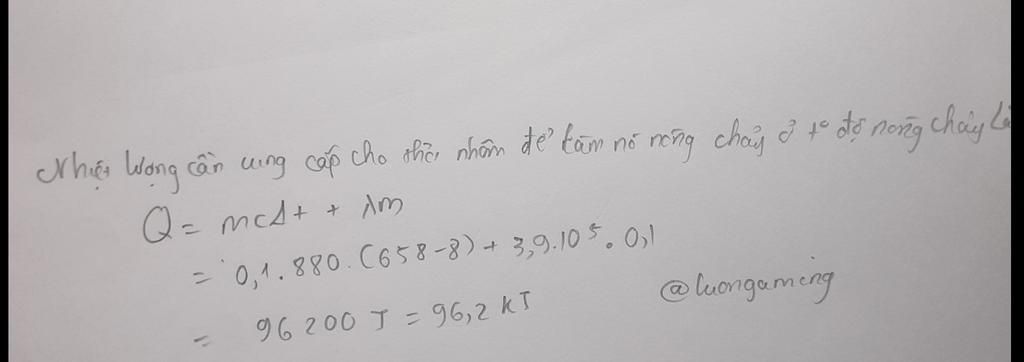 Nhiệt lượng cần cung cấp cho thỏi nhôm để làm nó nóng chảy ở t° độ nóng chảy là
Q = mcΔt + λm
= 0,1.880.(658-8) + 3,9.10⁵.0,1
= 96200 J = 96,2 kJ
@luongaming